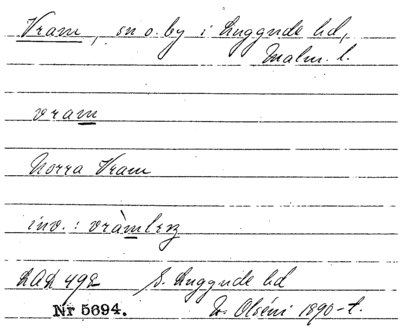 Vram, sn o. by i Luggude hd,
Malm. l.
vram
Norra Vram
inv.: vràmbrz
LAL 492 S. Luggude hd
Nr 5694. N. Olséni 1890-t.